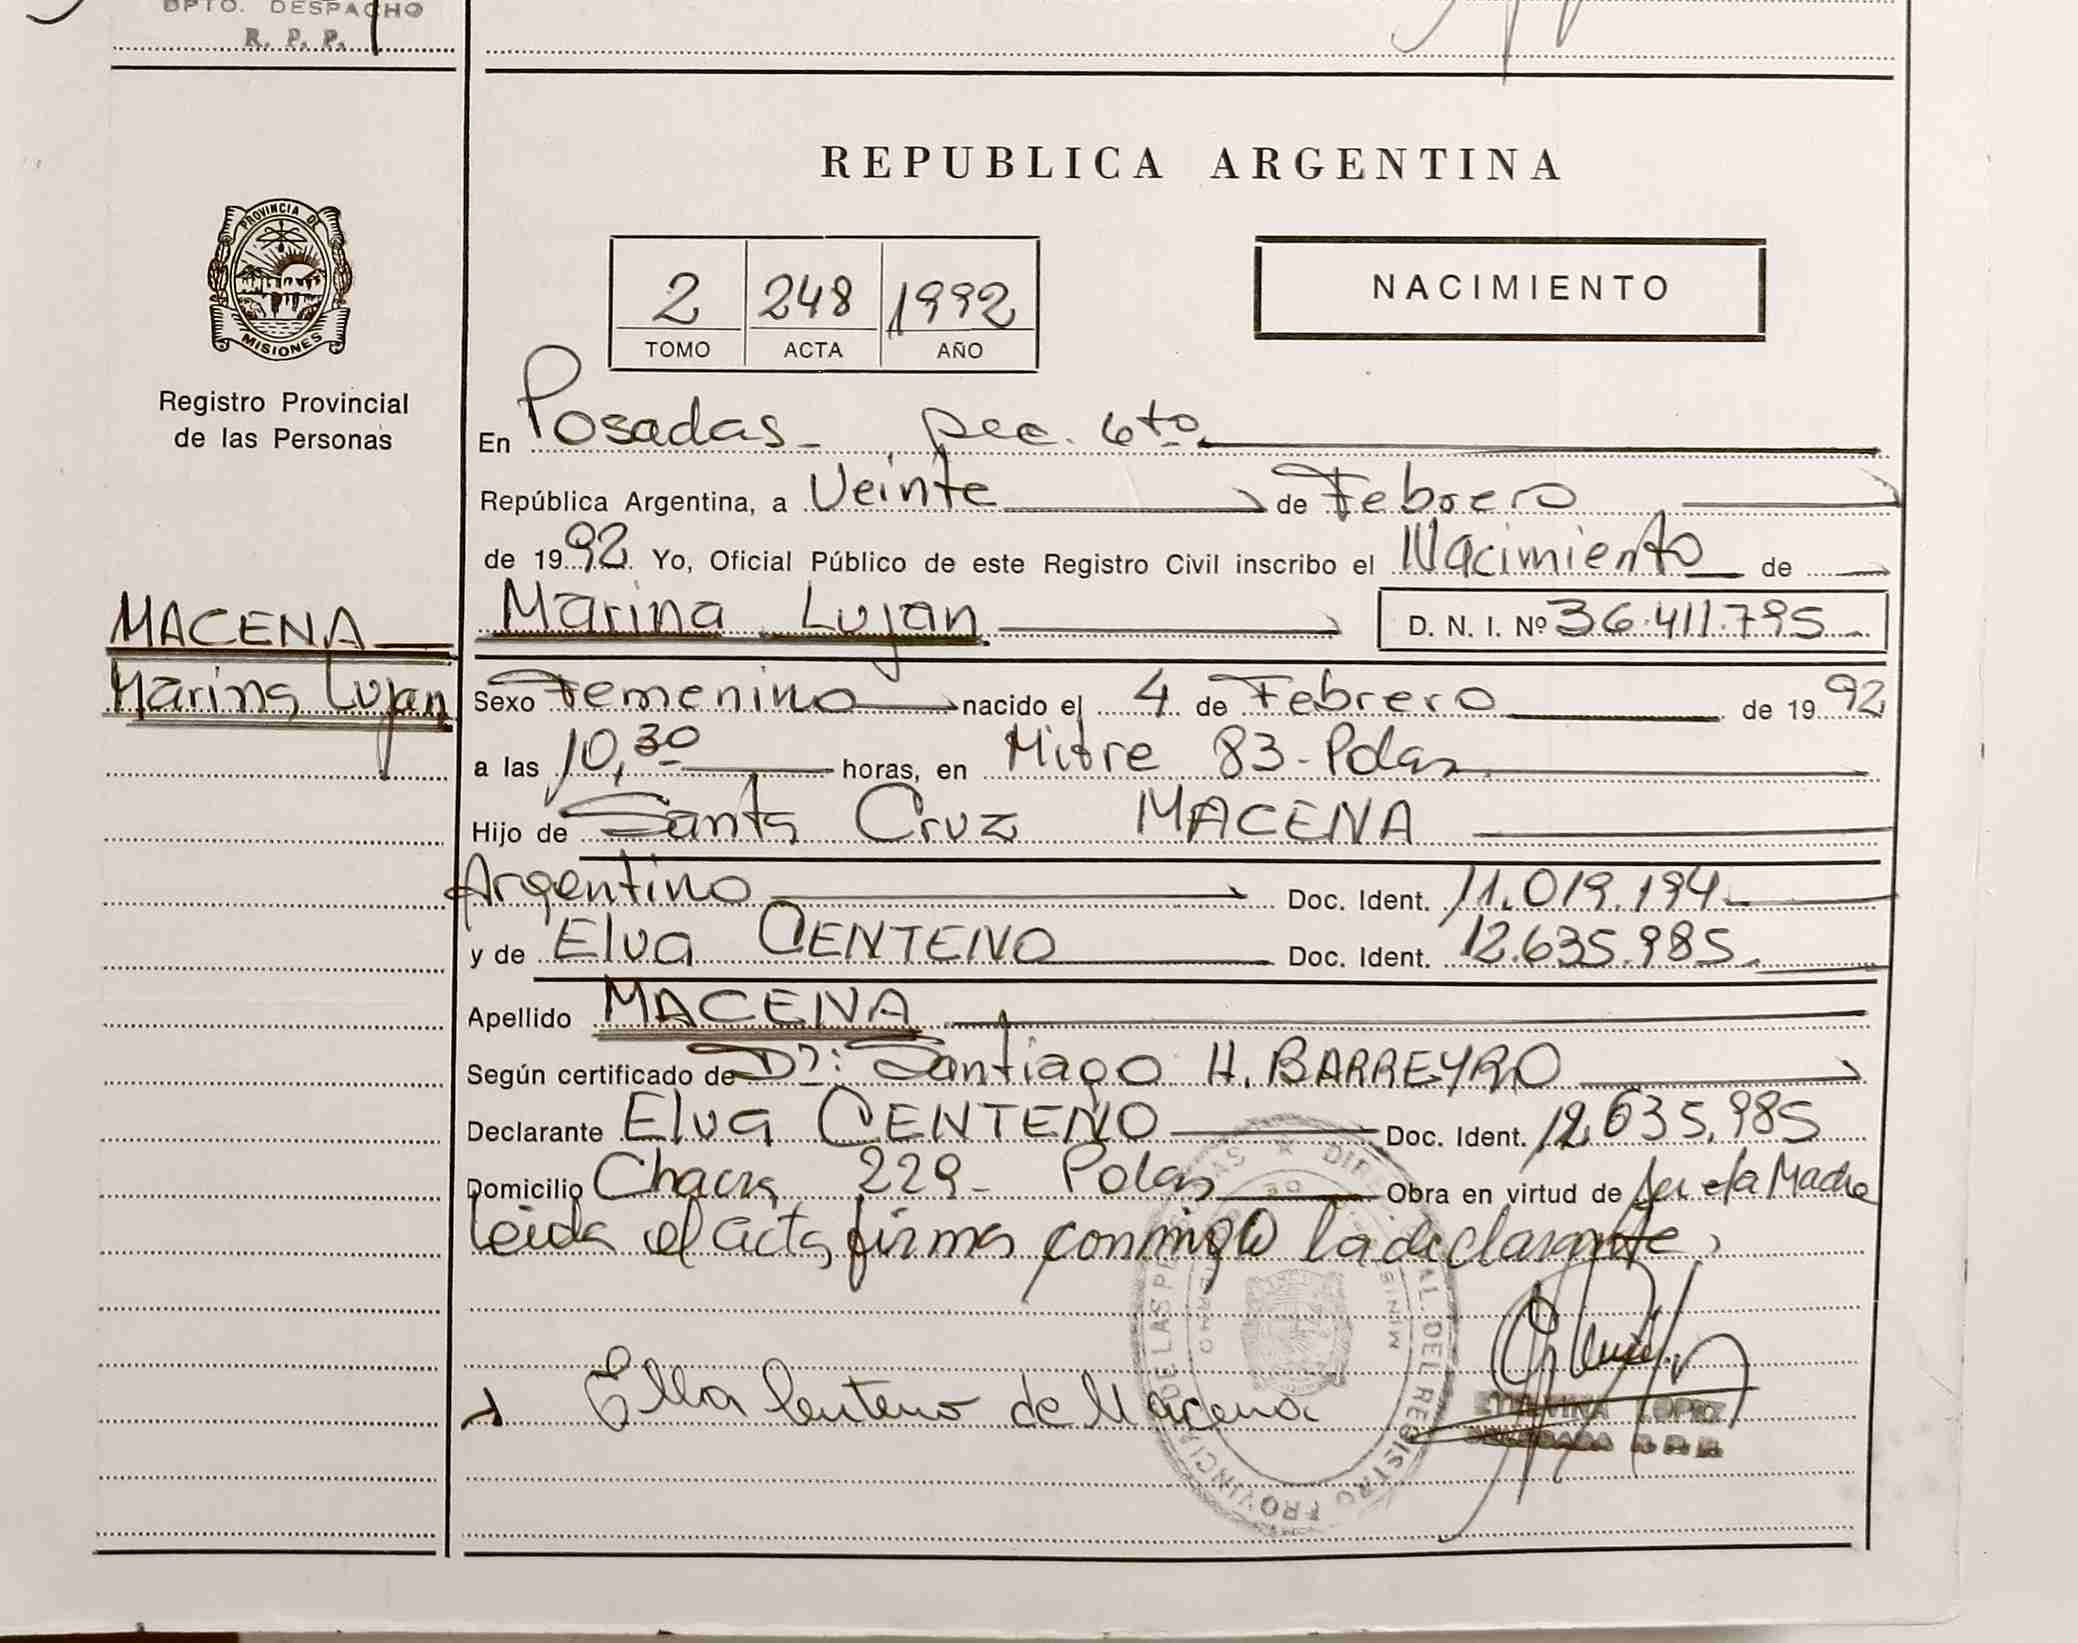 DPTO. DESPACHO
R. P. P.
REPUBLICA ARGENTINA
PROVINCIA DE
MISIONES
Registro Provincial
de las Personas
2 248 1992
TOMO ACTA AÑO
NACIMIENTO
En Posadas - Sec. 6to.
República Argentina, a Veinte de Febrero
de 1992. Yo, Oficial Público de este Registro Civil inscribo el Nacimiento de
MACENA
Marina Lujan
Marina Lujan D. N. I. Nº 36.411.795
Sexo Femenino nacido el 4 de Febrero de 1992
a las 10,30 horas, en Mitre 83 - Pdas
Hijo de Santa Cruz MACENA
Argentino Doc. Ident. 11.019.194
y de Elva CENTENO Doc. Ident. 12.635.985
Apellido MACENA
Según certificado de Dr: Santiago H. BARREYRO
Declarante Elva CENTENO Doc. Ident. 12.635.985
Domicilio Chacra 229 - Pdas Obra en virtud de ser la Madre
leida el acta, firma conmigo la declarante,
Elva Centeno de Macena
LOPEZ
DELEGADA R.P.P.
DIRECCION GRAL. DEL REGISTRO PROVINCIAL DE LAS PERSONAS